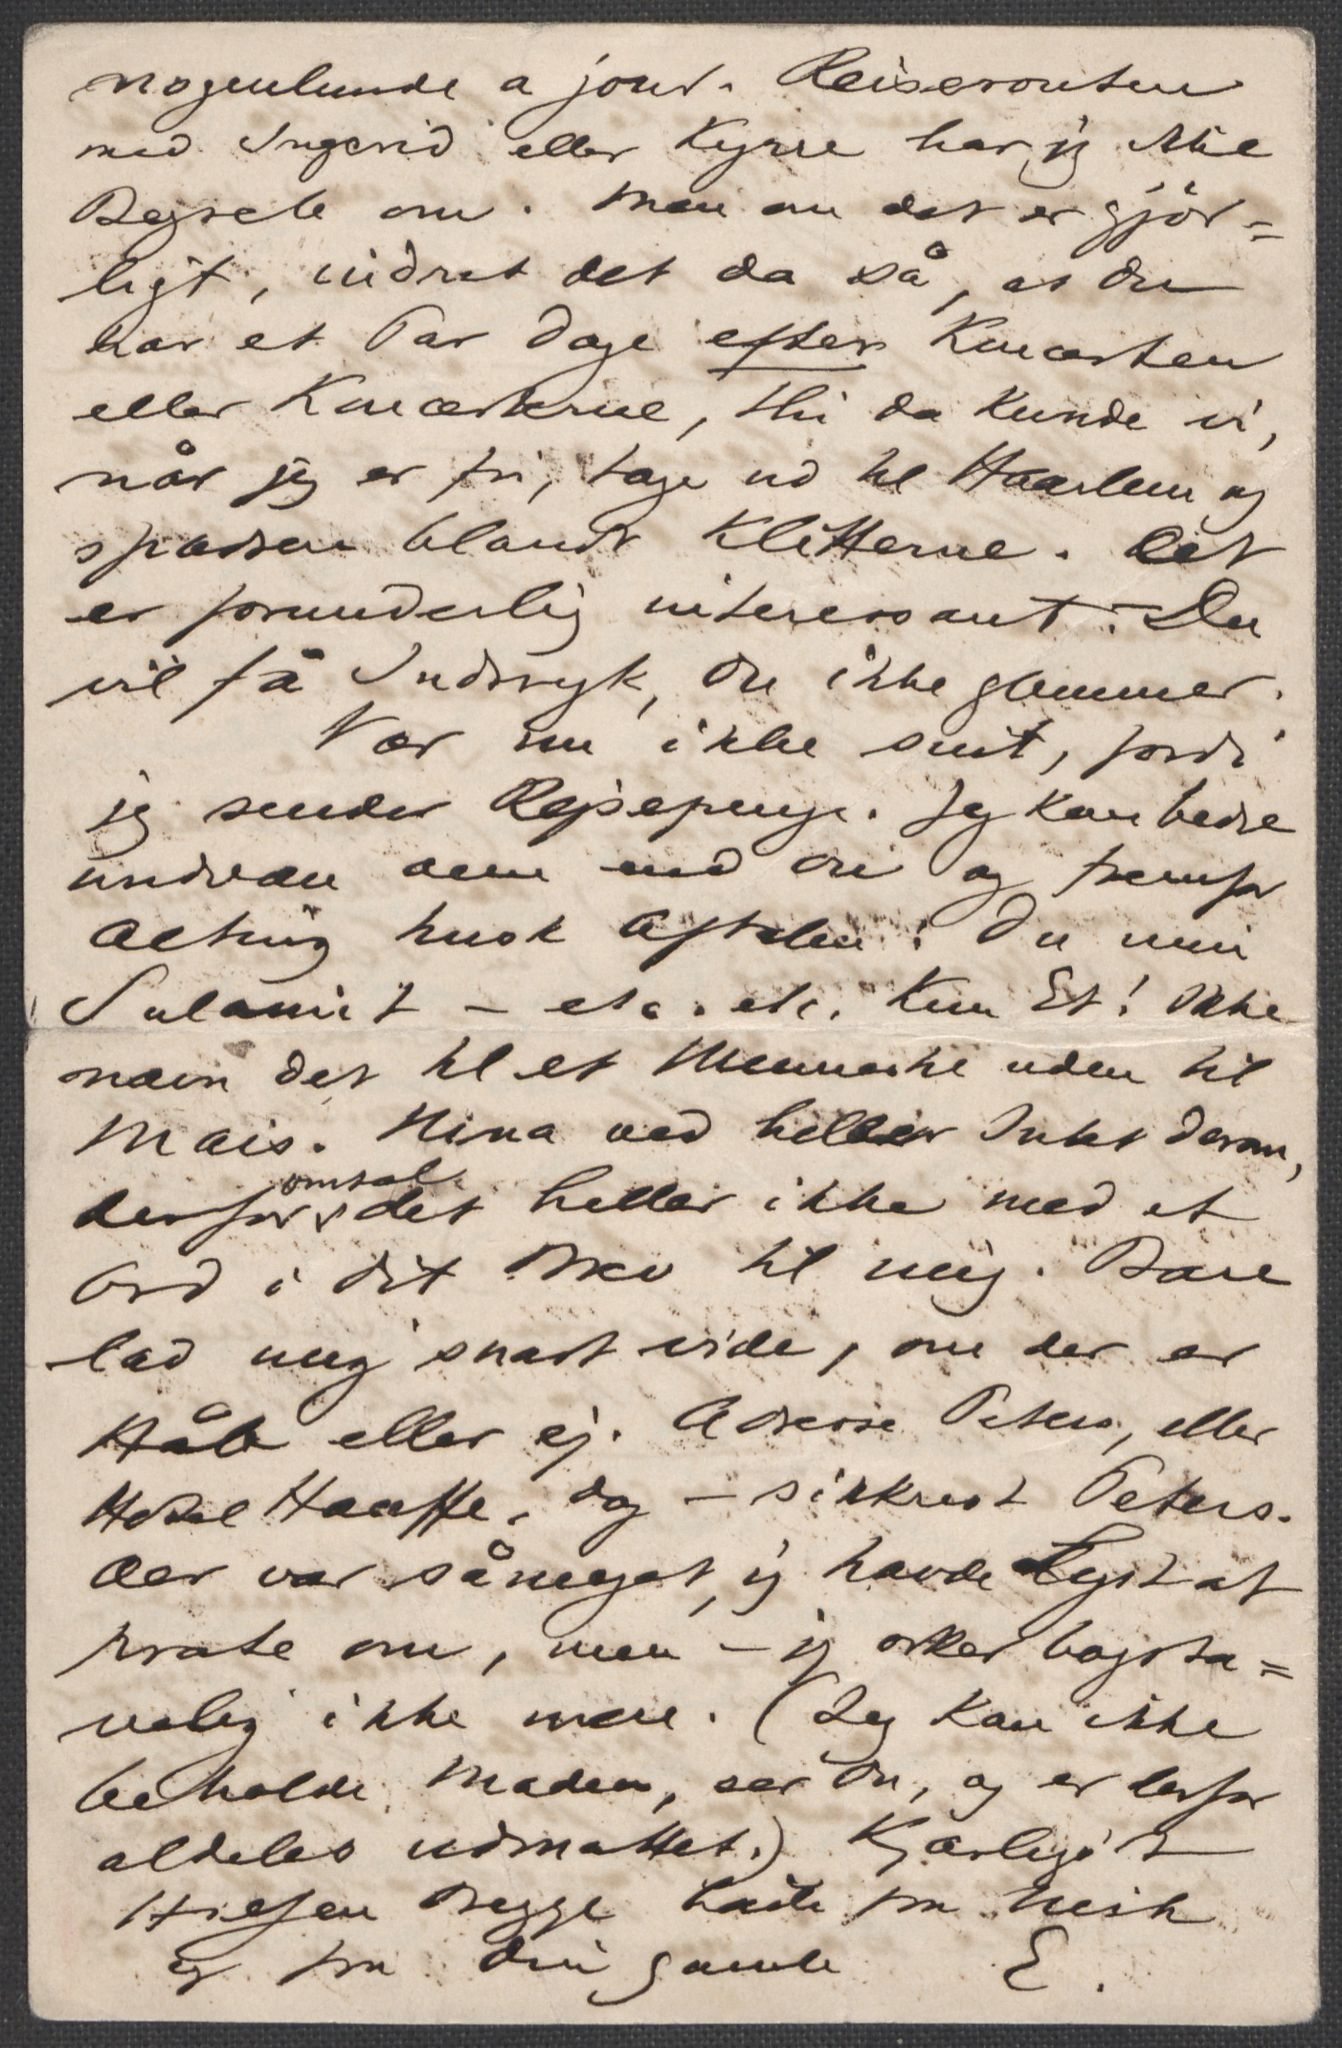 nogenlunde a jour. Reiserouten
med Ingerid eller Kyrre har jeg ikke
Begreb om. Men om det er gjör=
ligt, indret det da så, at Du
har et Par Dage efter Koncerten
eller Koncerterne, thi da kunde vi,
når jeg er fri, tage ud til Haarlem og
spadsere blandt Klitterne. Det
er forunderlig interessant. Du
vil få Indtryk, Du ikke glemmer.
Vær nu ikke sint, fordi
jeg sender Rejsepenge. Jeg kan bedre
undvære dem end Du og fremfor
Alting husk Aftalen: Du min
Sulamit – etc. etc. Kun Et! Ikke
nævn det til et Menneske uden til
Mais. Nina ved heller Intet derom,
omtal
derfor det heller ikke med et
Ord i dit Brev til mig. Bare
lad mig snart vide, om der er
Håb eller ej. Adresse Peters, eller
Hotel Hauffe, dog – sikkrest Peters.
Der var såmeget, jeg havde Lyst at
prate om, men – jeg orker bogsta=
velig ikke mere. (Jeg kan ikke
beholde Maden, ser Du, og er derfor
aldeles udmattet.) Kjærligst
Hilsen Begge To fra Nina
og fra din gamle E.